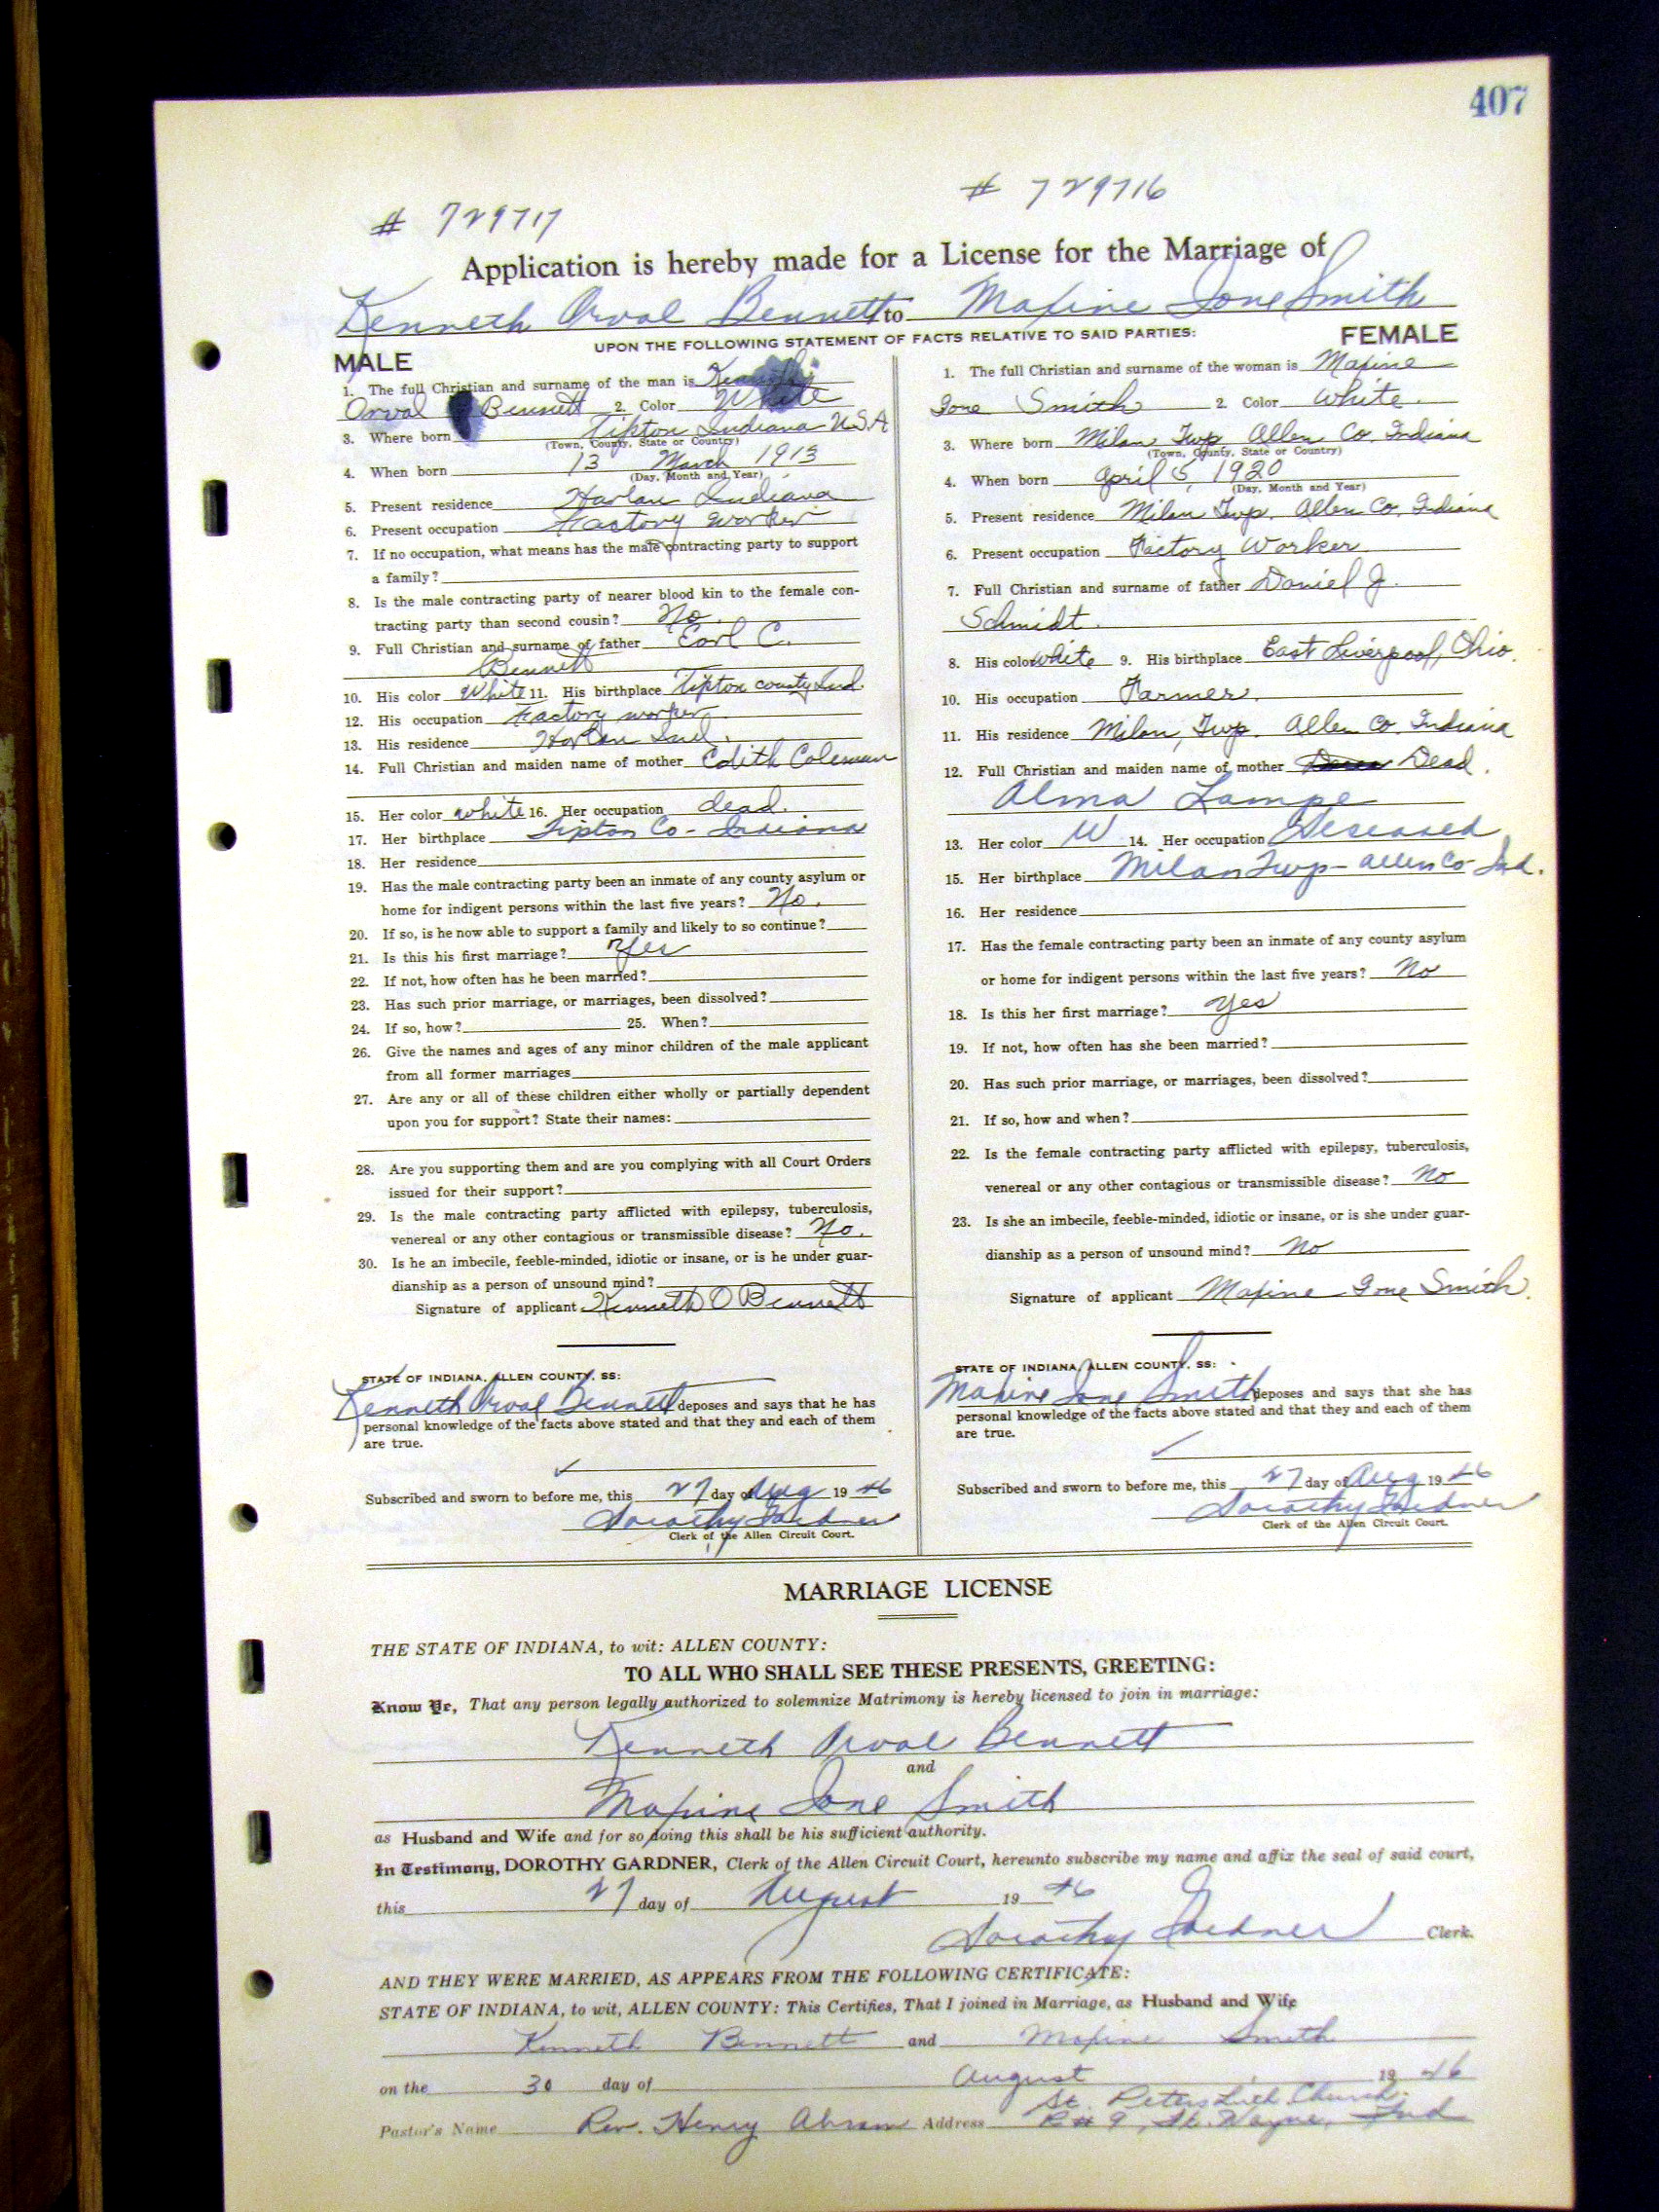 407
# 729717
# 729716
Application is hereby made for a License for the Marriage of
Kenneth Orval Bennett to Maxine Ione Smith
UPON THE FOLLOWING STATEMENT OF FACTS RELATIVE TO SAID PARTIES:
MALE
1. The full Christian and surname of the man is Kenneth
Orval Bennett 2. Color White
3. Where born Tipton Indiana U.S.A
(Town, County, State or Country)
4. When born 13 March 1913
(Day, Month and Year)
5. Present residence Harlan Indiana
6. Present occupation Factory worker
7. If no occupation, what means has the male contracting party to support
a family?
8. Is the male contracting party of nearer blood kin to the female con-
tracting party than second cousin? No.
9. Full Christian and surname of father Earl C.
Bennett
10. His color White 11. His birthplace Tipton county Ind.
12. His occupation Factory worker
13. His residence Harlan Ind.
14. Full Christian and maiden name of mother Edith Coleman
15. Her color white 16. Her occupation dead.
17. Her birthplace Tipton Co - Indiana
18. Her residence
19. Has the male contracting party been an inmate of any county asylum or
home for indigent persons within the last five years? No.
20. If so, is he now able to support a family and likely to so continue?
21. Is this his first marriage? Yes
22. If not, how often has he been married?
23. Has such prior marriage, or marriages, been dissolved?
24. If so, how? 25. When?
26. Give the names and ages of any minor children of the male applicant
from all former marriages
27. Are any or all of these children either wholly or partially dependent
upon you for support? State their names:
28. Are you supporting them and are you complying with all Court Orders
issued for their support?
29. Is the male contracting party afflicted with epilepsy, tuberculosis,
venereal or any other contagious or transmissible disease? No.
30. Is he an imbecile, feeble-minded, idiotic or insane, or is he under guar-
dianship as a person of unsound mind?
Signature of applicant Kenneth O Bennett
STATE OF INDIANA, ALLEN COUNTY, SS:
Kenneth Orval Bennett deposes and says that he has
personal knowledge of the facts above stated and that they and each of them
are true.
Subscribed and sworn to before me, this 27 day of Aug 19 46
Dorothy Gardner
Clerk of the Allen Circuit Court.
FEMALE
1. The full Christian and surname of the woman is Maxine
Ione Smith 2. Color White.
3. Where born Milan Twp Allen Co. Indiana
(Town, County, State or Country)
4. When born April 5, 1920
(Day, Month and Year)
5. Present residence Milan Twp. Allen Co. Indiana
6. Present occupation Factory Worker
7. Full Christian and surname of father Daniel J.
Schmidt.
8. His color white 9. His birthplace East Liverpool, Ohio.
10. His occupation Farmer.
11. His residence Milan, Twp. Allen Co Indiana
12. Full Christian and maiden name of mother Dead.
Alma Lampe
13. Her color W 14. Her occupation Deseased
15. Her birthplace Milan Twp - Allen Co Ind.
16. Her residence
17. Has the female contracting party been an inmate of any county asylum
or home for indigent persons within the last five years? No
18. Is this her first marriage? yes
19. If not, how often has she been married?
20. Has such prior marriage, or marriages, been dissolved?
21. If so, how and when?
22. Is the female contracting party afflicted with epilepsy, tuberculosis,
venereal or any other contagious or transmissible disease? No
23. Is she an imbecile, feeble-minded, idiotic or insane, or is she under guar-
dianship as a person of unsound mind? No
Signature of applicant Maxine Ione Smith.
STATE OF INDIANA, ALLEN COUNTY, SS:
Maxine Ione Smith deposes and says that she has
personal knowledge of the facts above stated and that they and each of them
are true.
Subscribed and sworn to before me, this 27 day of Aug 19 46
Dorothy Gardner
Clerk of the Allen Circuit Court.
MARRIAGE LICENSE
THE STATE OF INDIANA, to wit: ALLEN COUNTY:
TO ALL WHO SHALL SEE THESE PRESENTS, GREETING:
Know Ye, That any person legally authorized to solemnize Matrimony is hereby licensed to join in marriage:
Kenneth Orval Bennett
and
Maxine Ione Smith
as Husband and Wife and for so doing this shall be his sufficient authority.
In Testimony, DOROTHY GARDNER, Clerk of the Allen Circuit Court, hereunto subscribe my name and affix the seal of said court,
this 27 day of August 19 46
Dorothy Gardner Clerk.
AND THEY WERE MARRIED, AS APPEARS FROM THE FOLLOWING CERTIFICATE:
STATE OF INDIANA, to wit, ALLEN COUNTY: This Certifies, That I joined in Marriage, as Husband and Wife
Kenneth Bennett and Maxine Smith
on the 30 day of August 19 46
St. Peters Luth Church
Pastor's Name Rev. Henry Abram Address R # 9, Ft. Wayne, Ind